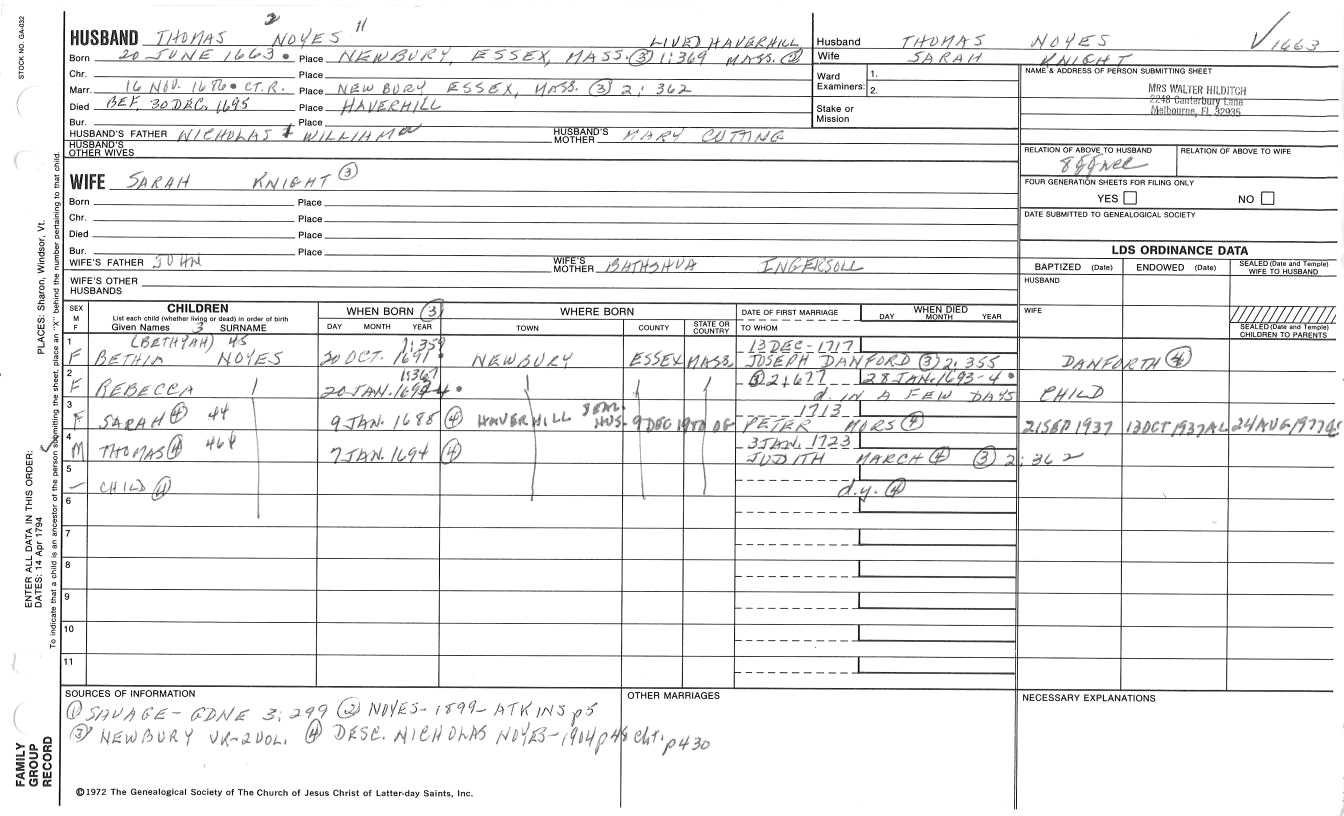 STOCK NO. GA-032
2 11
HUSBAND THOMAS NOYES LIVED HAVERHILL
Born 20 JUNE 1663 • Place NEWBURY, ESSEX, MASS. ③ 1:369 MASS. ②
Chr. Place
Marr. 16 NOV. 1686 • CT.R. Place NEWBURY ESSEX, MASS. ③ 2:362
Died BEF. 30 DEC. 1695 Place HAVERHILL
Bur. Place
HUSBAND'S FATHER NICHOLAS WILLIAM HUSBAND'S MOTHER MARY CUTTING
HUSBAND'S OTHER WIVES
Husband THOMAS NOYES √1663
Wife SARAH KNIGHT
Ward Examiners: 1.
2.
Stake or Mission
NAME & ADDRESS OF PERSON SUBMITTING SHEET
MRS WALTER HILDITCH
2248 Canterbury Lane
Melbourne, FL 32935
RELATION OF ABOVE TO HUSBAND RELATION OF ABOVE TO WIFE
FOUR GENERATION SHEETS FOR FILING ONLY
YES NO
DATE SUBMITTED TO GENEALOGICAL SOCIETY
WIFE SARAH KNIGHT ③
Born Place
Chr. Place
Died Place
Bur. Place
WIFE'S FATHER JOHN WIFE'S MOTHER BATHSHUA INGERSOLL
WIFE'S OTHER HUSBANDS
LDS ORDINANCE DATA
BAPTIZED (Date) ENDOWED (Date) SEALED (Date and Temple) WIFE TO HUSBAND
HUSBAND
WIFE
SEALED (Date and Temple) CHILDREN TO PARENTS
SEX M F
CHILDREN
List each child (whether living or dead) in order of birth
Given Names 3 SURNAME
WHEN BORN ③
DAY MONTH YEAR
WHERE BORN
TOWN COUNTY STATE OR COUNTRY
DATE OF FIRST MARRIAGE
TO WHOM
WHEN DIED
DAY MONTH YEAR
1 (BETHYAH) 45 1:359 13 DEC-1717
F BETHIA NOYES 20 OCT. 1691 • NEWBURY ESSEX MASS. JOSEPH DANFORD ③ 2:355 DANFORTH ④
2 1:367 ③ 2:677 28 JAN. 1693-4 •
F REBECCA 20 JAN. 1693-4 • d. IN A FEW DAYS CHILD
3 1713
F SARAH ④ 44 9 JAN. 1688 ④ HAVERHILL 9 DEC 1950 PETER MORS ④ 21 SEP 1937 13 OCT 1937 AL 24 AUG 1977
4 3 JAN. 1723
M THOMAS ④ 46 7 JAN. 1694 ④ JUDITH MARCH ④ ③ 2:362
5
– CHILD ④ d.y. ④
6
7
8
9
10
11
SOURCES OF INFORMATION
① SAVAGE – GDNE 3:299 ② NOYES-1899-ATKINS p5
③ NEWBURY VR-2VOL. ④ DESC. NICHOLAS NOYES-1904 p48 cht. p430
OTHER MARRIAGES
NECESSARY EXPLANATIONS
©1972 The Genealogical Society of The Church of Jesus Christ of Latter-day Saints, Inc.
FAMILY GROUP RECORD
ENTER ALL DATA IN THIS ORDER:
DATES: 14 Apr 1794
PLACES: Sharon, Windsor, Vt.
To indicate that a child is an ancestor of the person submitting the sheet, place an "X" behind the number pertaining to that child.